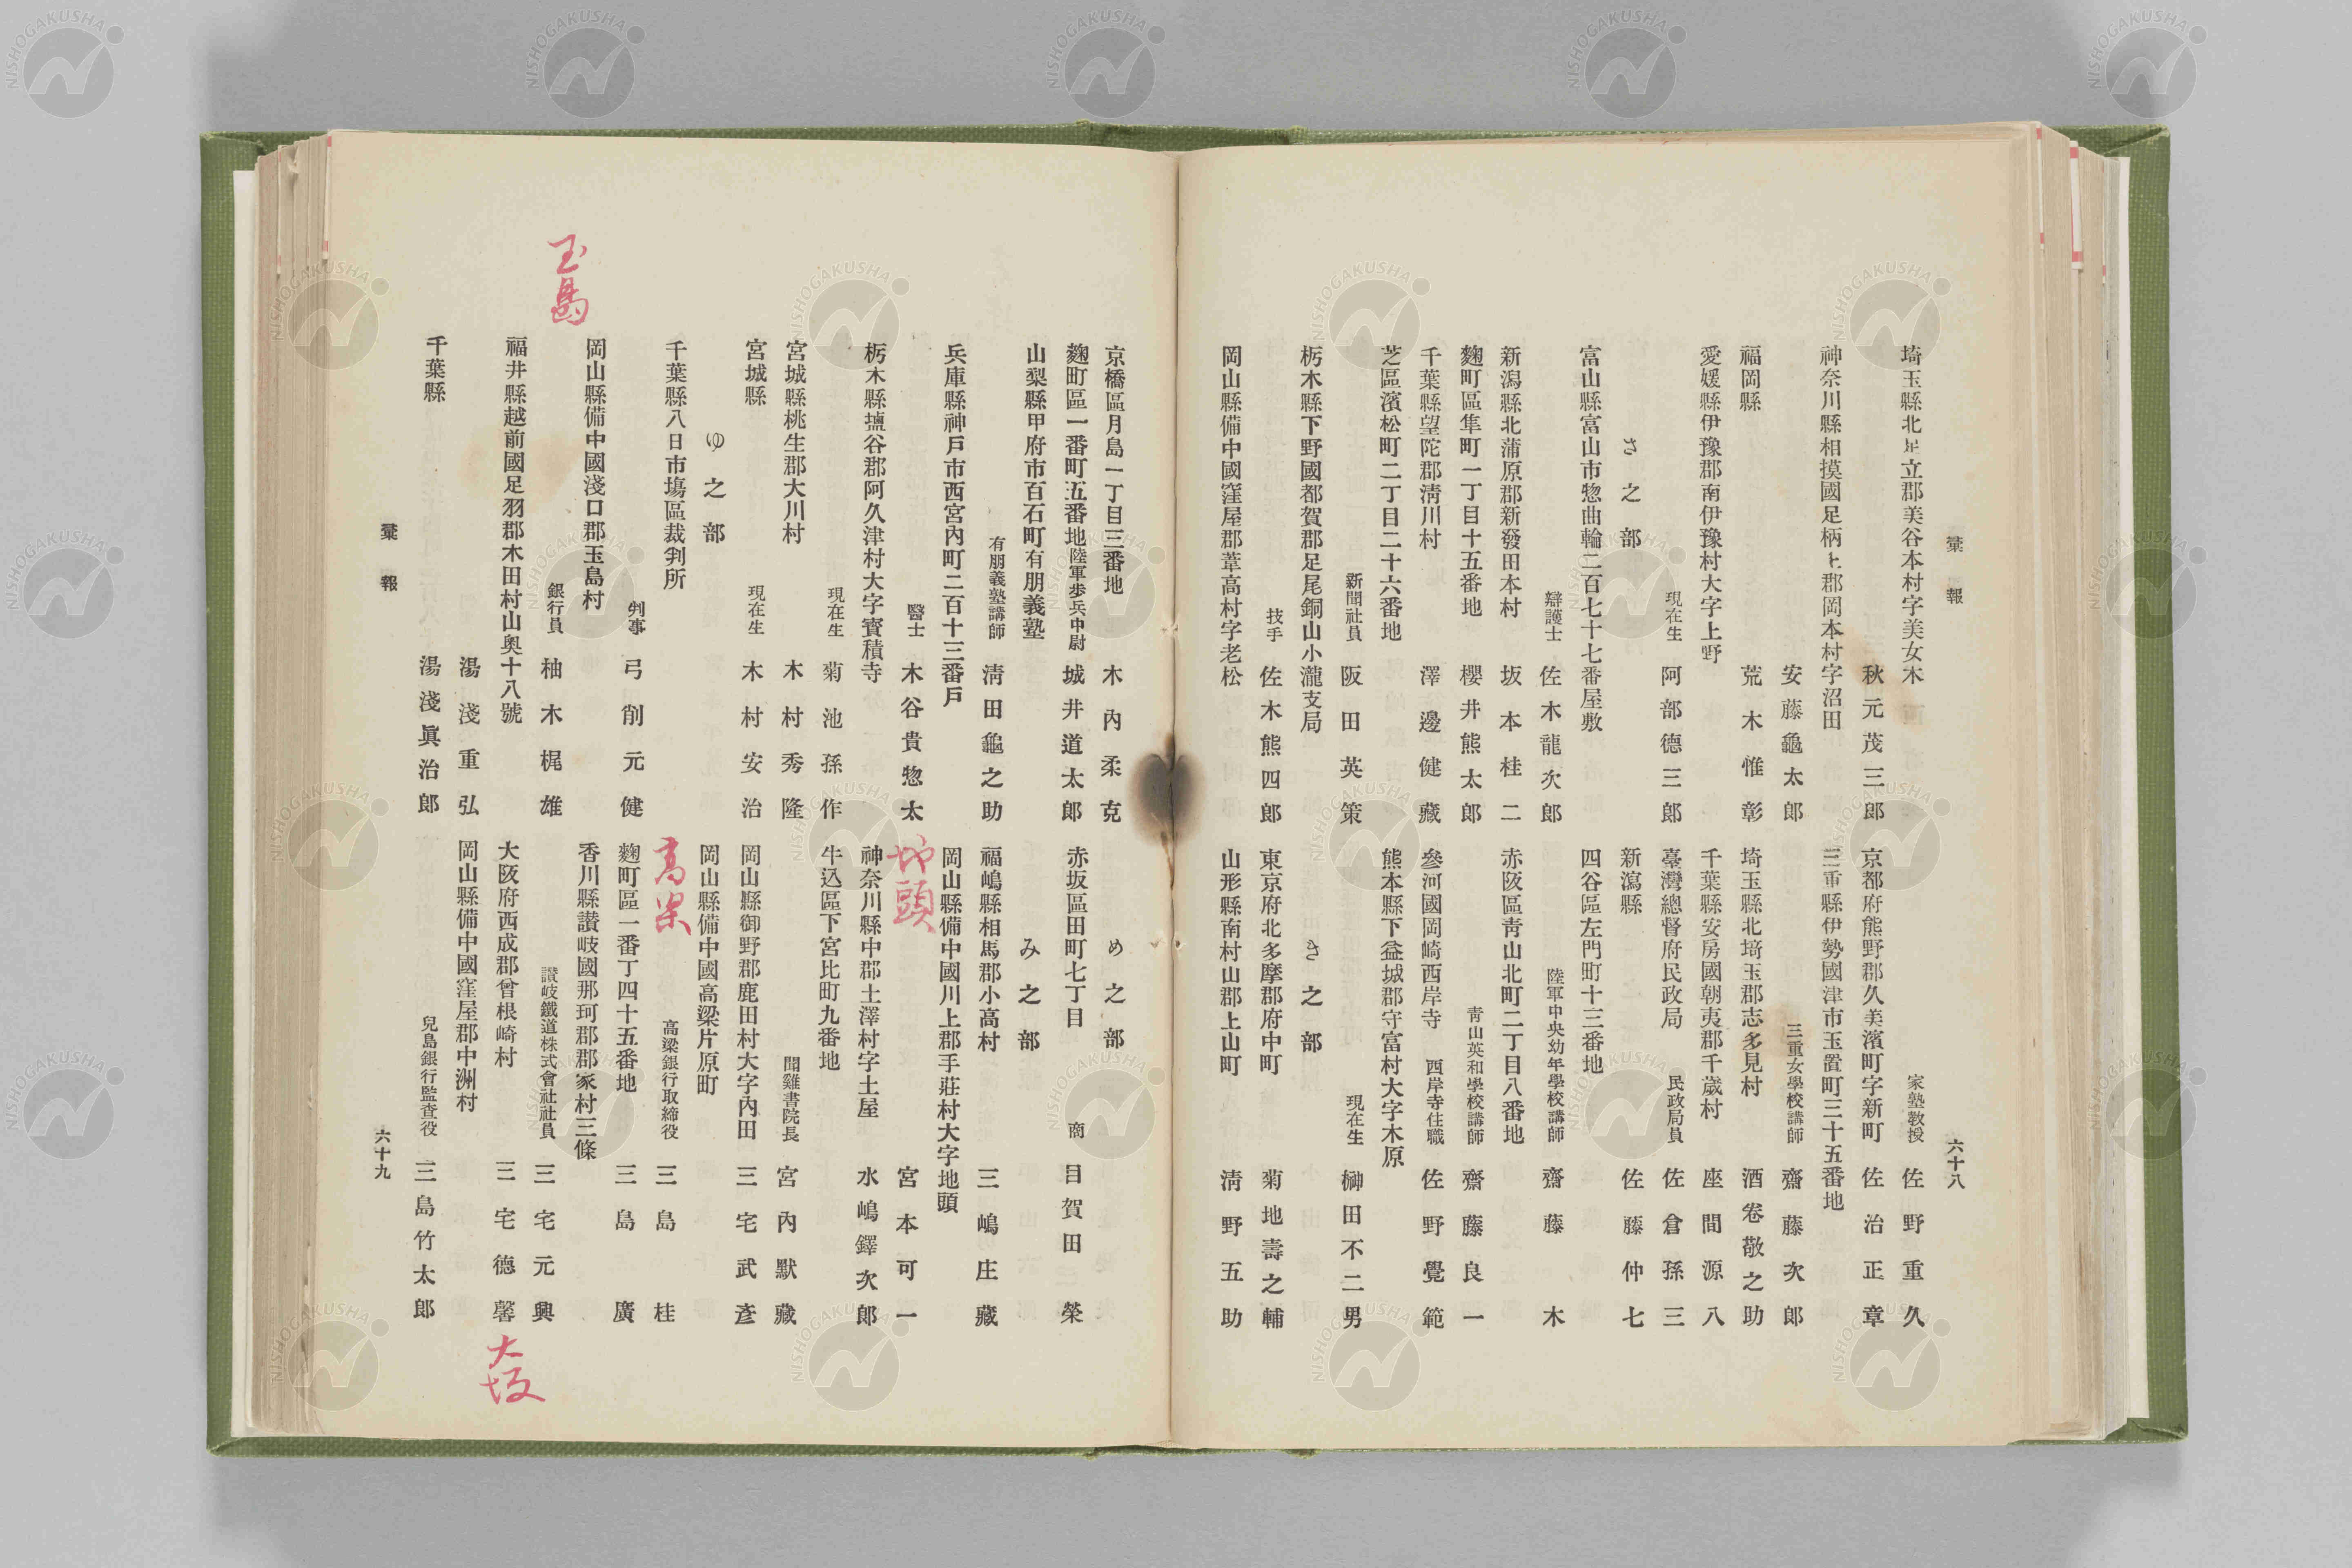 彙報
六十八
埼玉縣北足立郡美谷本村字美女木
秋元茂三郎
神奈川縣相摸國足柄上郡岡本村字沼田
安藤龜太郎
福岡縣
荒木惟彰
愛媛縣伊豫郡南伊豫村大字上野
現在生 阿部德三郎
さ之部
富山縣富山市惣曲輪二百七十七番屋敷
辯護士 佐木龍次郎
新潟縣北蒲原郡新發田本村 坂本桂二
麴町區隼町一丁目十五番地 櫻井熊太郎
千葉縣望陀郡淸川村 澤邊健藏
芝區濱松町二丁目二十六番地
新聞社員 阪田英策
栃木縣下野國都賀郡足尾銅山小瀧支局
技手 佐木熊四郎
岡山縣備中國窪屋郡葦高村字老松
家塾敎授 佐野重久
京都府熊野郡久美濱町字新町 佐治正章
三重縣伊勢國津市玉置町三十五番地
三重女學校講師 齋藤次郎
埼玉縣北埼玉郡志多見村 酒卷敬之助
千葉縣安房國朝夷郡千歲村 座間源八
臺灣總督府民政局 民政局員 佐倉孫三
新瀉縣 佐藤仲七
四谷區左門町十三番地
陸軍中央幼年學校講師 齋藤木
赤阪區靑山北町二丁目八番地
靑山英和學校講師 齋藤良一
參河國岡崎西岸寺 西岸寺住職 佐野覺範
熊本縣下益城郡守富村大字木原
現在生 榊田不二男
き之部
東京府北多摩郡府中町 菊地壽之輔
山形縣南村山郡上山町 淸野五助
京橋區月島一丁目三番地 木內柔克
麴町區一番町五番地 陸軍步兵中尉 城井道太郎
山梨縣甲府市百石町有朋義塾
有朋義塾講師 淸田龜之助
兵庫縣神戶市西宮內町二百十三番戶
醫士 木谷貴惣太
栃木縣塩谷郡阿久津村大字寳積寺
現在生 菊池孫作
宮城縣桃生郡大川村 木村秀隆
宮城縣 現在生 木村安治
ゆ之部
千葉縣八日市塲區裁判所
判事 弓削元健
岡山縣備中國淺口郡玉島村
玉島
銀行員 柚木梶雄
福井縣越前國足羽郡木田村山奧十八號
湯淺重弘
千葉縣 湯淺眞治郎
め之部
赤坂區田町七丁目 商 目賀田榮
み之部
福嶋縣相馬郡小高村 三嶋庄藏
岡山縣備中國川上郡手莊村大字地頭
地頭
宮本可一
神奈川縣中郡土澤村字土屋 水嶋鐸次郎
牛込區下宮比町九番地
聞雞書院長 宮內默藏
岡山縣御野郡鹿田村大字內田 三宅武彥
岡山縣備中國高梁片原町
高梁
高梁銀行取締役 三島桂
麴町區一番丁四十五番地 三島廣
香川縣讃岐國那珂郡郡家村三條
讃岐鐵道株式會社社員 三宅元興
大阪府西成郡曾根崎村 三宅德馨
大坂
岡山縣備中國窪屋郡中洲村
兒島銀行監査役 三島竹太郎
彙報
六十九
NISHOGAKUSHA